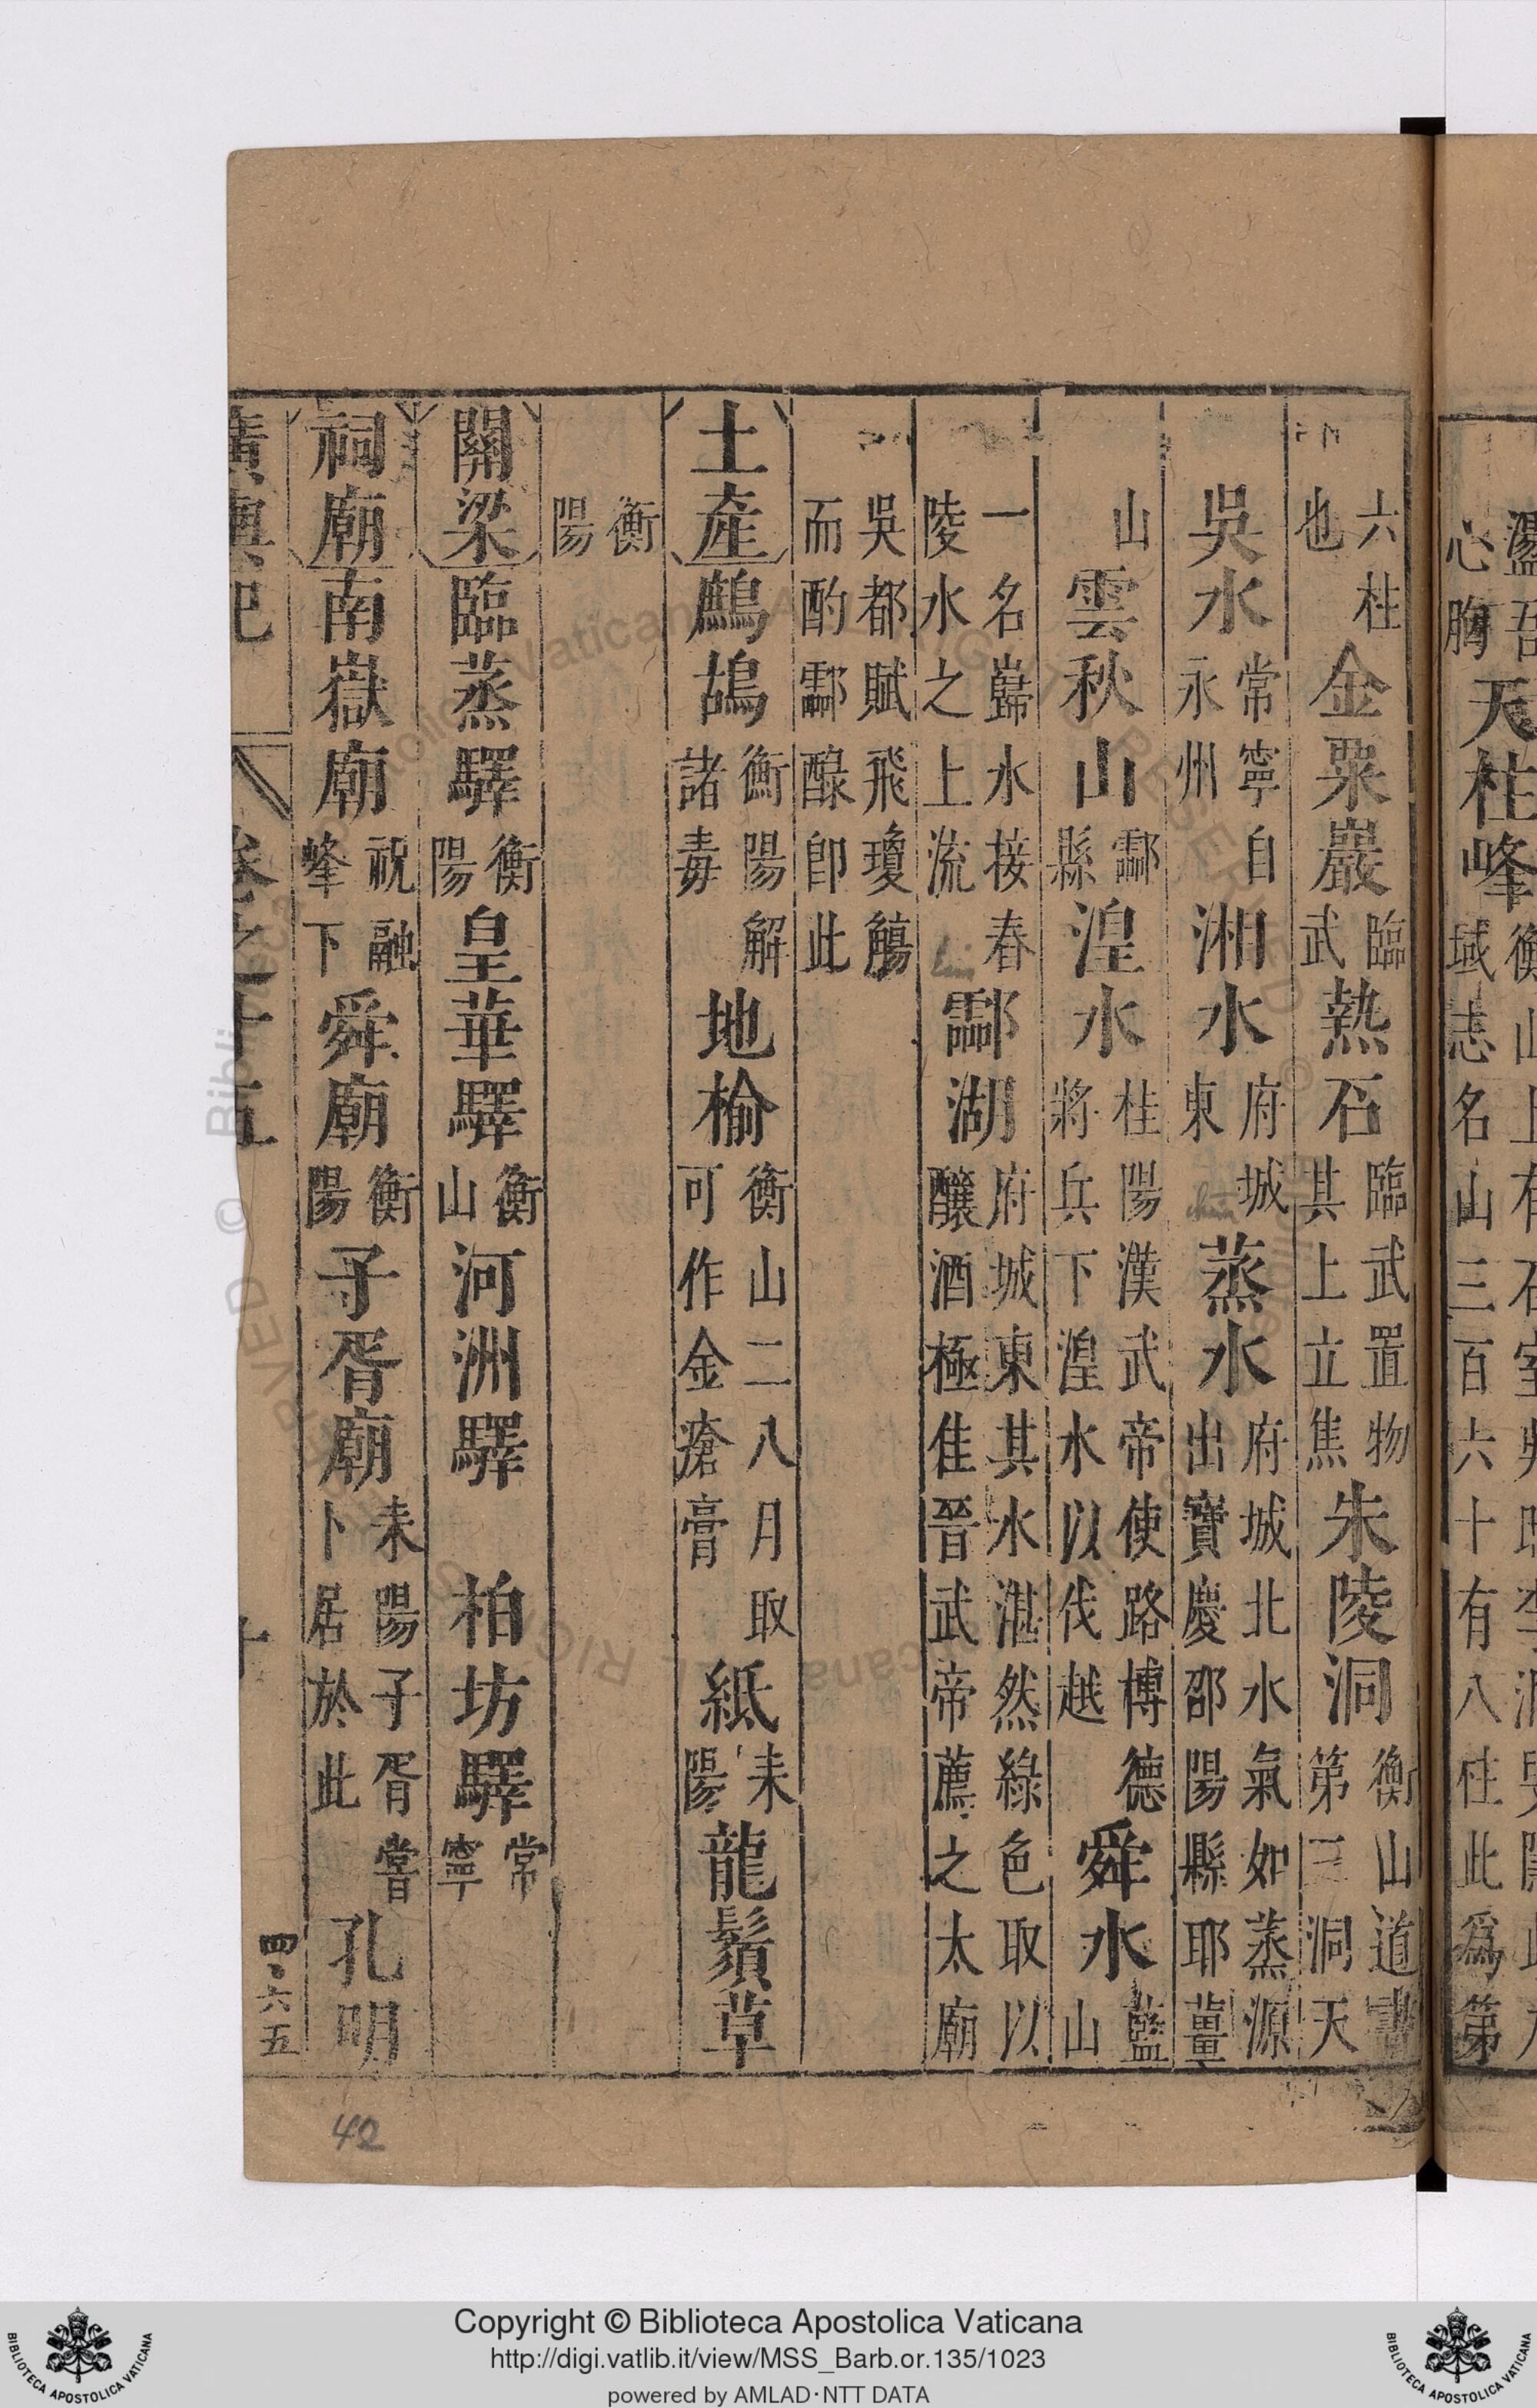 心胸天柱峰域志名山三百六十有八柱此爲第
六桂也金粟巖臨武熱石臨武置物其上立焦朱陵洞衡山道書第三洞天
吳水常寧自永州湘水府城東蒸水府城北水氣如蒸源出寶慶邵陽縣耶薑
山雲秋山酃縣湟水桂陽漢武帝使路博德將兵下湟水以伐越舜水藍山
一名巋水接舂陵水之上流酃湖府城東其水湛然綠色取以釀酒極佳晉武帝薦之太廟
吳都賦飛瓊觴而酌酃醁卽此
土產鷓鴣衡陽解諸毒地榆衡山二八月取可作金瘡膏紙耒陽龍鬚草
衡陽
關梁臨蒸驛衡陽皇華驛衡山河洲驛 柏坊驛常寧
祠廟南嶽廟祝融峰下舜廟衡陽子胥廟耒陽子胥嘗卜居於此孔明
廣輿記 卷之十五 十
四六五
42
Copyright © Biblioteca Apostolica Vaticana
http://digi.vatlib.it/view/MSS_Barb.or.135/1023
powered by AMLAD·NTT DATA
BIBLIOTECA APOSTOLICA VATICANA
BIBLIOTECA APOSTOLICA VATICANA